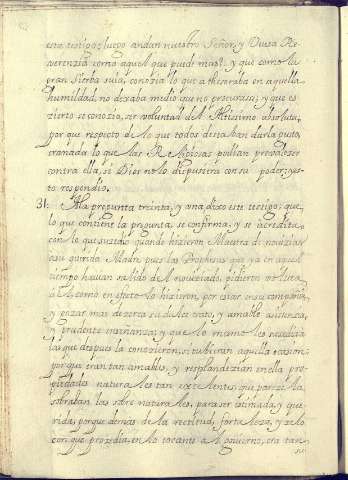 esta testigo luego andan nuestro Señor, y Vuesa Re-
verenzia como aquel que puede mas? y que como la
gran sierba suia, conozia lo que athesoraba en aquella
humildad, no dexaba medio que no procurase; y que es
zierto se conozio, ser voluntad del Altisimo absoluta,
por que respecto de lo que todos deseaban darla gusto,
era nada lo que las Religiosas podian prevalezer
contra ella, si Dios no lo dispusiera con su poder; y es-
to respondio.
31. A la pregunta treinta, y una dixo esta testigo: que,
lo que contiene la pregunta, se confirma, y se acredita,
con lo que suzedio quando hizieron Maestra de novizias
a su querida Madre, pues las Profesas que ya en aquel
tiempo havian salido del noviciado, pidieron volver a
el, como en efecto lo hizieron, por estar en su compañia,
y gozar mas de zerca su dulce trato, y amable asistenza,
y prudente enseñanza; y que lo mismo les suzediera
a las que despues la conozieron, si tubieran aquella ocasion;
por que eran tan amables, y resplandezian en ella pro-
piedades naturales tan excelentes, que pareze la
sobraban las sobre naturales, para ser estimada, y que-
rida; porque demas de la rectitud, fortaleza, y zelo
con que prozedia, en lo tocante al govierno, era tan